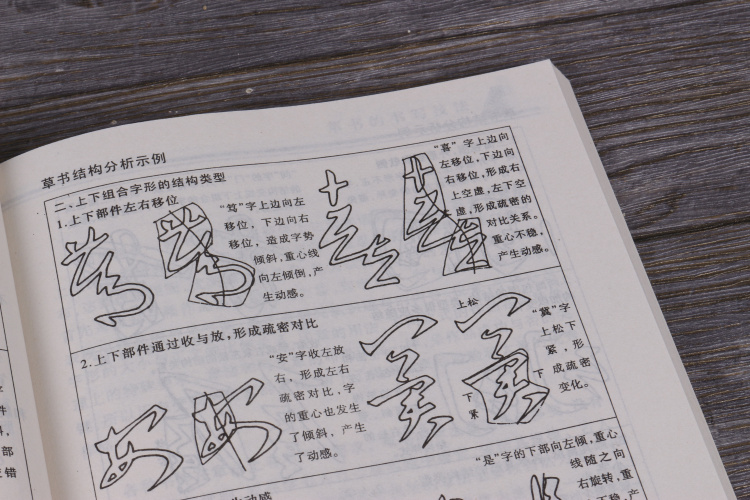 草书结构分析示例
二、上下组合字形的结构类型
1.上下部件左右移位
“笃”字上边向左
移位，下边向右
移位，造成字势
倾斜，重心线
向左倾倒，产
生动感。
“喜”字上边向
左移位，下边向
右移位，形成右
上空虚，左下空
虚，形成疏密的
对比关系。
重心不稳，
产生动感。
2.上下部件通过收与放，形成疏密对比
“安”字收左放
右，形成左右
疏密对比，字
的重心也发生
了倾斜，产生
了动感。
上松
下
紧
“冀”字
上松下
紧，形
成疏密
变化。
下
“是”字的下部向左倾，重心
线随之向
右旋转，重
生动感
件
部
错